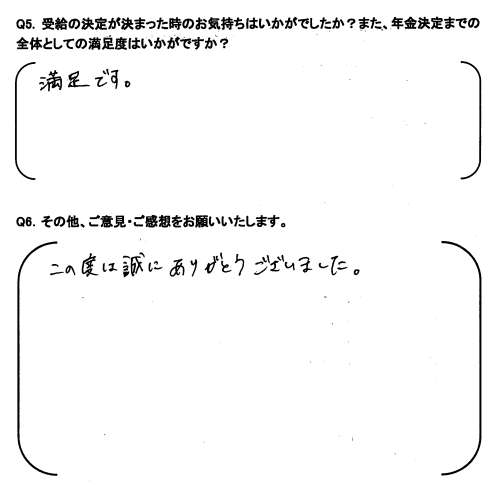 Q5. 受給の決定が決まった時のお気持ちはいかがでしたか？また、年金決定までの
全体としての満足度はいかがですか？
満足です。
Q6. その他、ご意見・ご感想をお願いいたします。
この度は誠にありがとうございました。